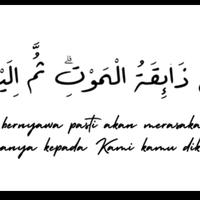 ذَاۤىِٕقَةُ الْمَوْتِۗ ثُمَّ اِلَيْ
bernyawa pasti akan merasaka
anya kepada Kami kamu dik